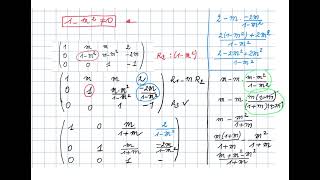 1 - m² ≠ 0
1 m m 2
0 1-m² m-m² -2m
0 0 1 -1
R₂ : (1-m²)
1 m m 2
0 1 m-m²/1-m² -2m/1-m²
0 0 1 -1
R₁ - m R₂
R₃ ✓
1 0 m/1+m 2/1-m²
0 1 m/1+m -2m/1-m²
0 0 1 -
2 - m · -2m/1-m²
2(1-m²)+2m²/1-m²
2-2m²+2m²/1-m²
m - m · m-m²/1-m²
m - m · m(1-m)/(1+m)(1-m)
m - m²/1+m
m(1+m)/1+m - m²/1+m
m+m²-m²/1+m